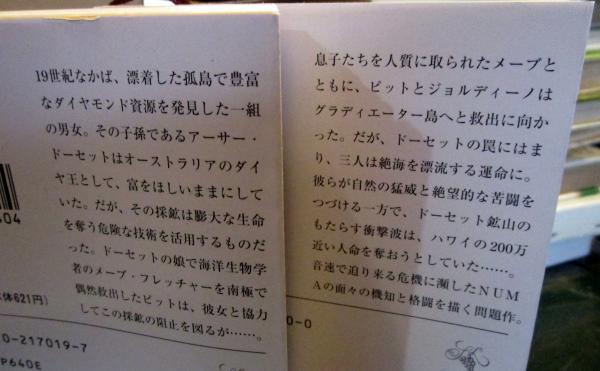 19世紀なかば、漂着した孤島で豊富
なダイヤモンド資源を発見した一組
の男女。その子孫であるアーサー・
ドーセットはオーストラリアのダイ
ヤ王として、富をほしいままにして
いた。だが、その採鉱は膨大な生命
を奪う危険な技術を活用するものだ
った。ドーセットの娘で海洋生物学
者のメーブ・フレッチャーを南極で
偶然救出したピットは、彼女と協力
してこの採鉱の阻止を図るが……。
604
体621円)
0-217019-7
P640E
息子たちを人質に取られたメーブと
ともに、ピットとジョルディーノは
グラディエーター島へと救出に向か
った。だが、ドーセットの罠にはま
り、三人は絶海を漂流する運命に。
彼らが自然の猛威と絶望的な苦闘を
つづける一方で、ドーセット鉱山の
もたらす衝撃波は、ハワイの200万
近い人命を奪おうとしていた……。
音速で迫り来る危機に瀕したNUM
Aの面々の機知と格闘を描く問題作。
0-0